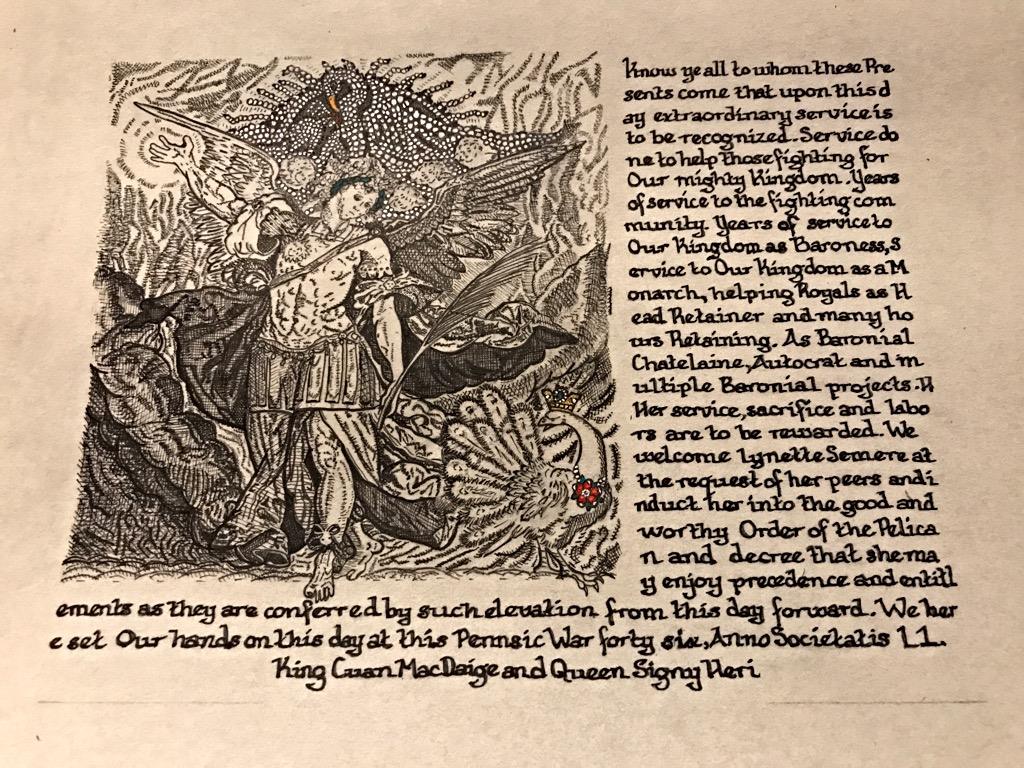 Know ye all to whom these Pre
sents come that upon this d
ay extraordinary service is
to be recognized. Service do
ne to help those fighting for
Our mighty Kingdom. Years
of service to the fighting com
munity. Years of service to
Our Kingdom as Baroness, S
ervice to Our Kingdom as a M
onarch, helping Royals as H
ead Retainer and many ho
urs Retaining. As Baronial
Chatelaine, Autocrat and m
ultiple Baronial projects. H
Her service, sacrifice and labo
rs are to be rewarded. We
welcome Lynette Semere at
the request of her peers and i
nduct her into the good and
worthy Order of the Pelica
n and decree that she ma
y enjoy precedence and entitl
ements as they are conferred by such elevation from this day forward. We her
e set Our hands on this day at this Pennsic War forty six, Anno Societatis LI.
King Cuan MacDaige and Queen Signy Heri